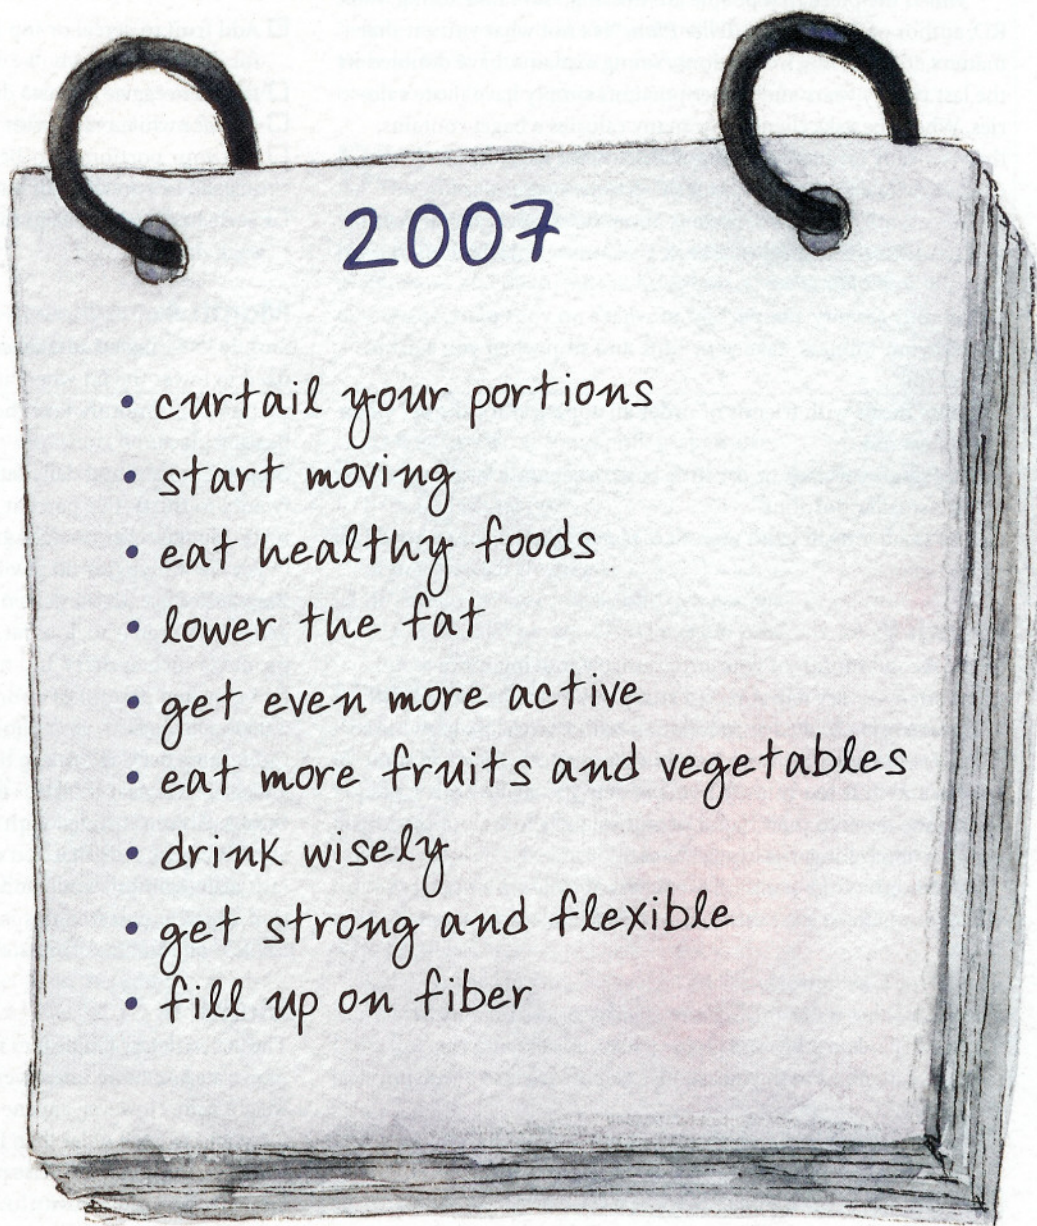 2007
• curtail your portions
• start moving
• eat healthy foods
• lower the fat
• get even more active
• eat more fruits and vegetables
• drink wisely
• get strong and flexible
• fill up on fiber